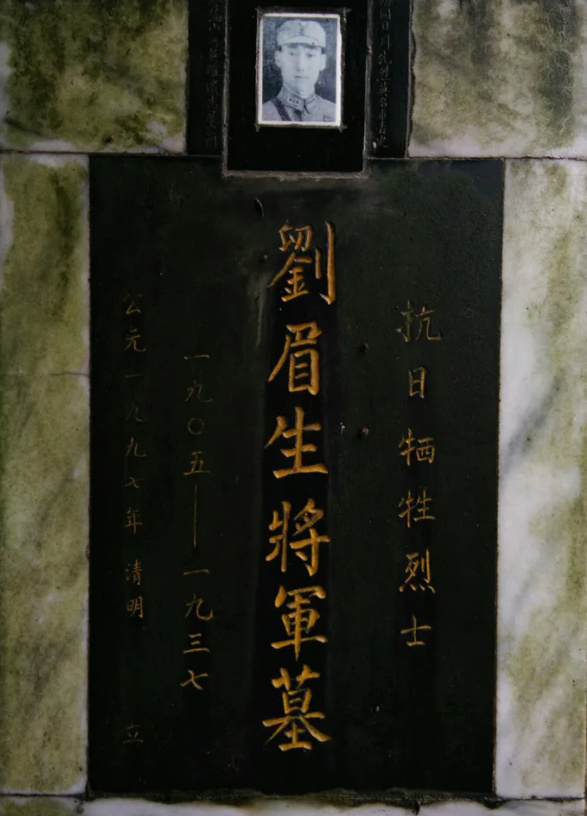 抗日牺牲烈士
劉眉生將軍墓
一九〇五——一九三七
公元一九九七年 清明 立